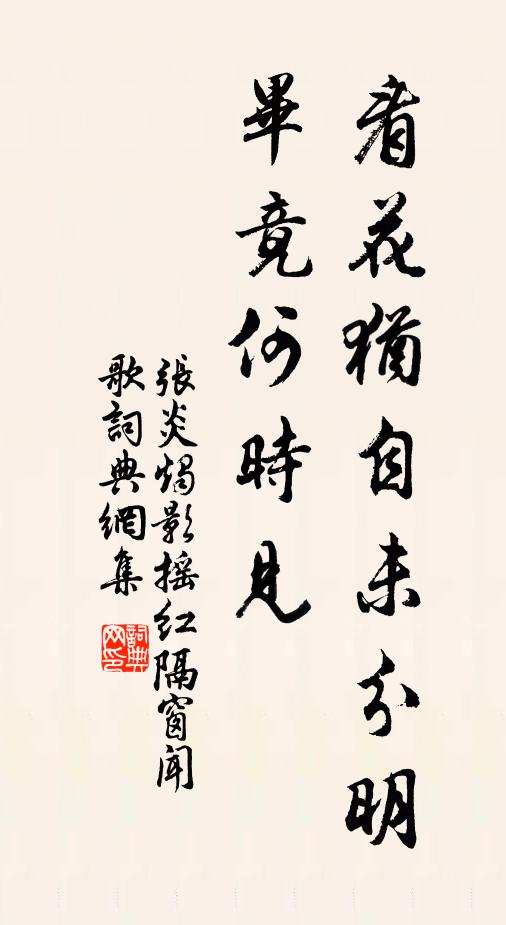 看花猶自未分明
畢竟何時見
張炎燭影搖紅隔窗聞
歌詞典網集
詞典
网印